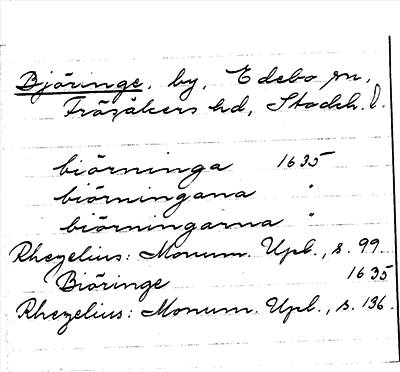 Björinge, by, Edebo sn,
Frösåkers hd, Stockh. l.
biörninga 1635
biörningana "
biörningarna "
Rhezelius: Monum. Upl., s. 99.
Biöringe 1635
Rhezelius: Monum. Upl., s. 136.